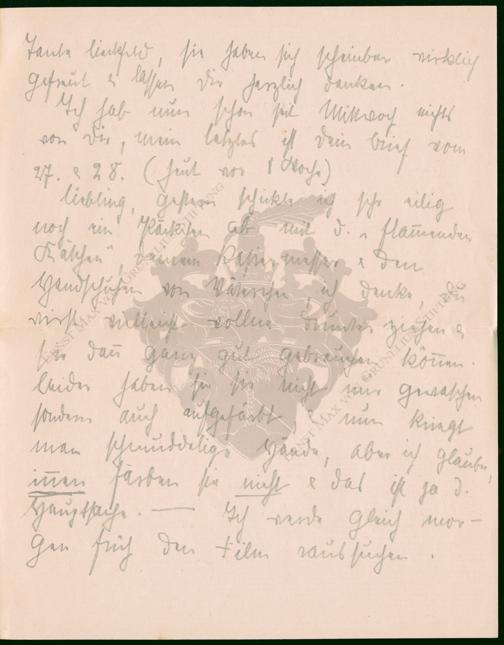 Tante Lienfeld, sie haben sich scheinbar wirklich
gefreut & lassen Dir herzlich danken.
Ich hab nun schon seit Mittwoch nichts
von Dir, mein letztes ist Dein Brief vom
27. & 28. (heut vor 1 Woche)
Liebling, gestern schickte ich sehr eilig
noch ein Päckchen ab mit d. „flammenden
Kätchen", Deinem Rasiermesser & den
Handschuhen von Väterchen, ich denke, Du
wirst vielleicht wollne drunter ziehen &
sie dann ganz gut gebrauchen können.
Leider haben sie sie nicht nur gewaschen
sondern auch aufgefärbt & nun kriegt
man schmuddelige Hände, aber ich glaube,
innen färben sie nicht & das ist ja d.
Hauptsache. — Ich werde gleich mor-
gen früh den Film raussuchen.
ERNST MAX VON GRUNELIUS-STIFTUNG
ERNST MAX VON GRUNELIUS-STIFTUNG